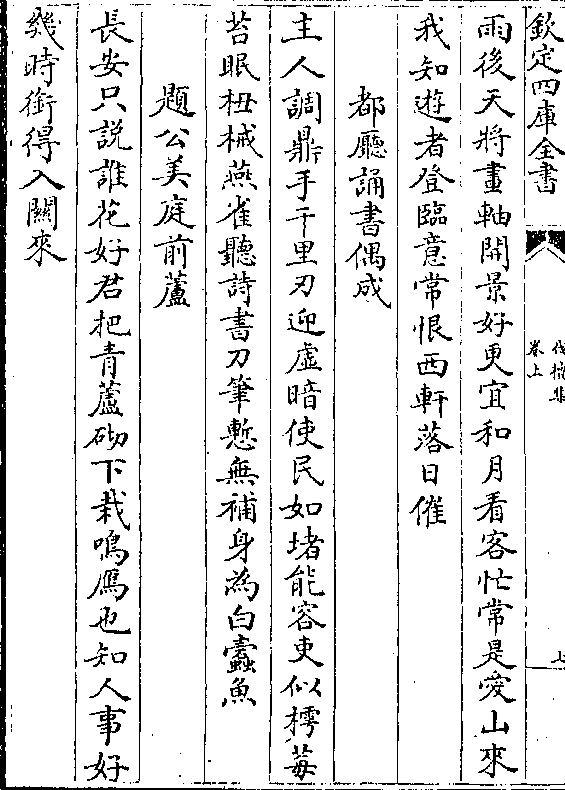 欽定四庫全書
伐檀集
卷上
七
雨後天將畫軸開景好更宜和月看客忙常是愛山來
我知遊者登臨意常恨西軒落日催
都廳誦書偶成
主人調鼎手千里刃迎虛暗使民如堵能容吏似樗莓
苔眠杻械燕雀聽詩書刀筆慙無補身為白蠹魚
題公美庭前蘆
長安只説誰花好君把青蘆砌下栽鳴鴈也知人事好
幾時銜得入闗來